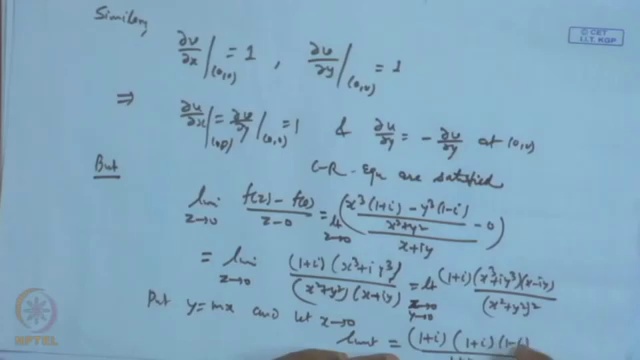 © CET
I.I.T. KGP
Similarly
∂v/∂x |(0,0) = 1 , ∂v/∂y |(0,0) = 1
⇒ ∂u/∂x |(0,0) = ∂v/∂y |(0,0) = 1 & ∂u/∂y = - ∂v/∂y at (0,0)
But C-R-Equ are satisfied
lim z→0 (f(z) - f(0))/(z-0) = Lt z→0 ( ((x³(1+i) - y³(1-i))/(x²+y²) - 0)/(x+iy) )
= lim z→0 ((1+i)(x³+iy³))/((x²+y²)(x+iy)) = Lt x→0 y→0 ((1+i)(x³+iy³)(x-iy))/(x²+y²)²
Put y=mx and let x→0
limit = (1+i)(1+i)(1-i)
NPTEL